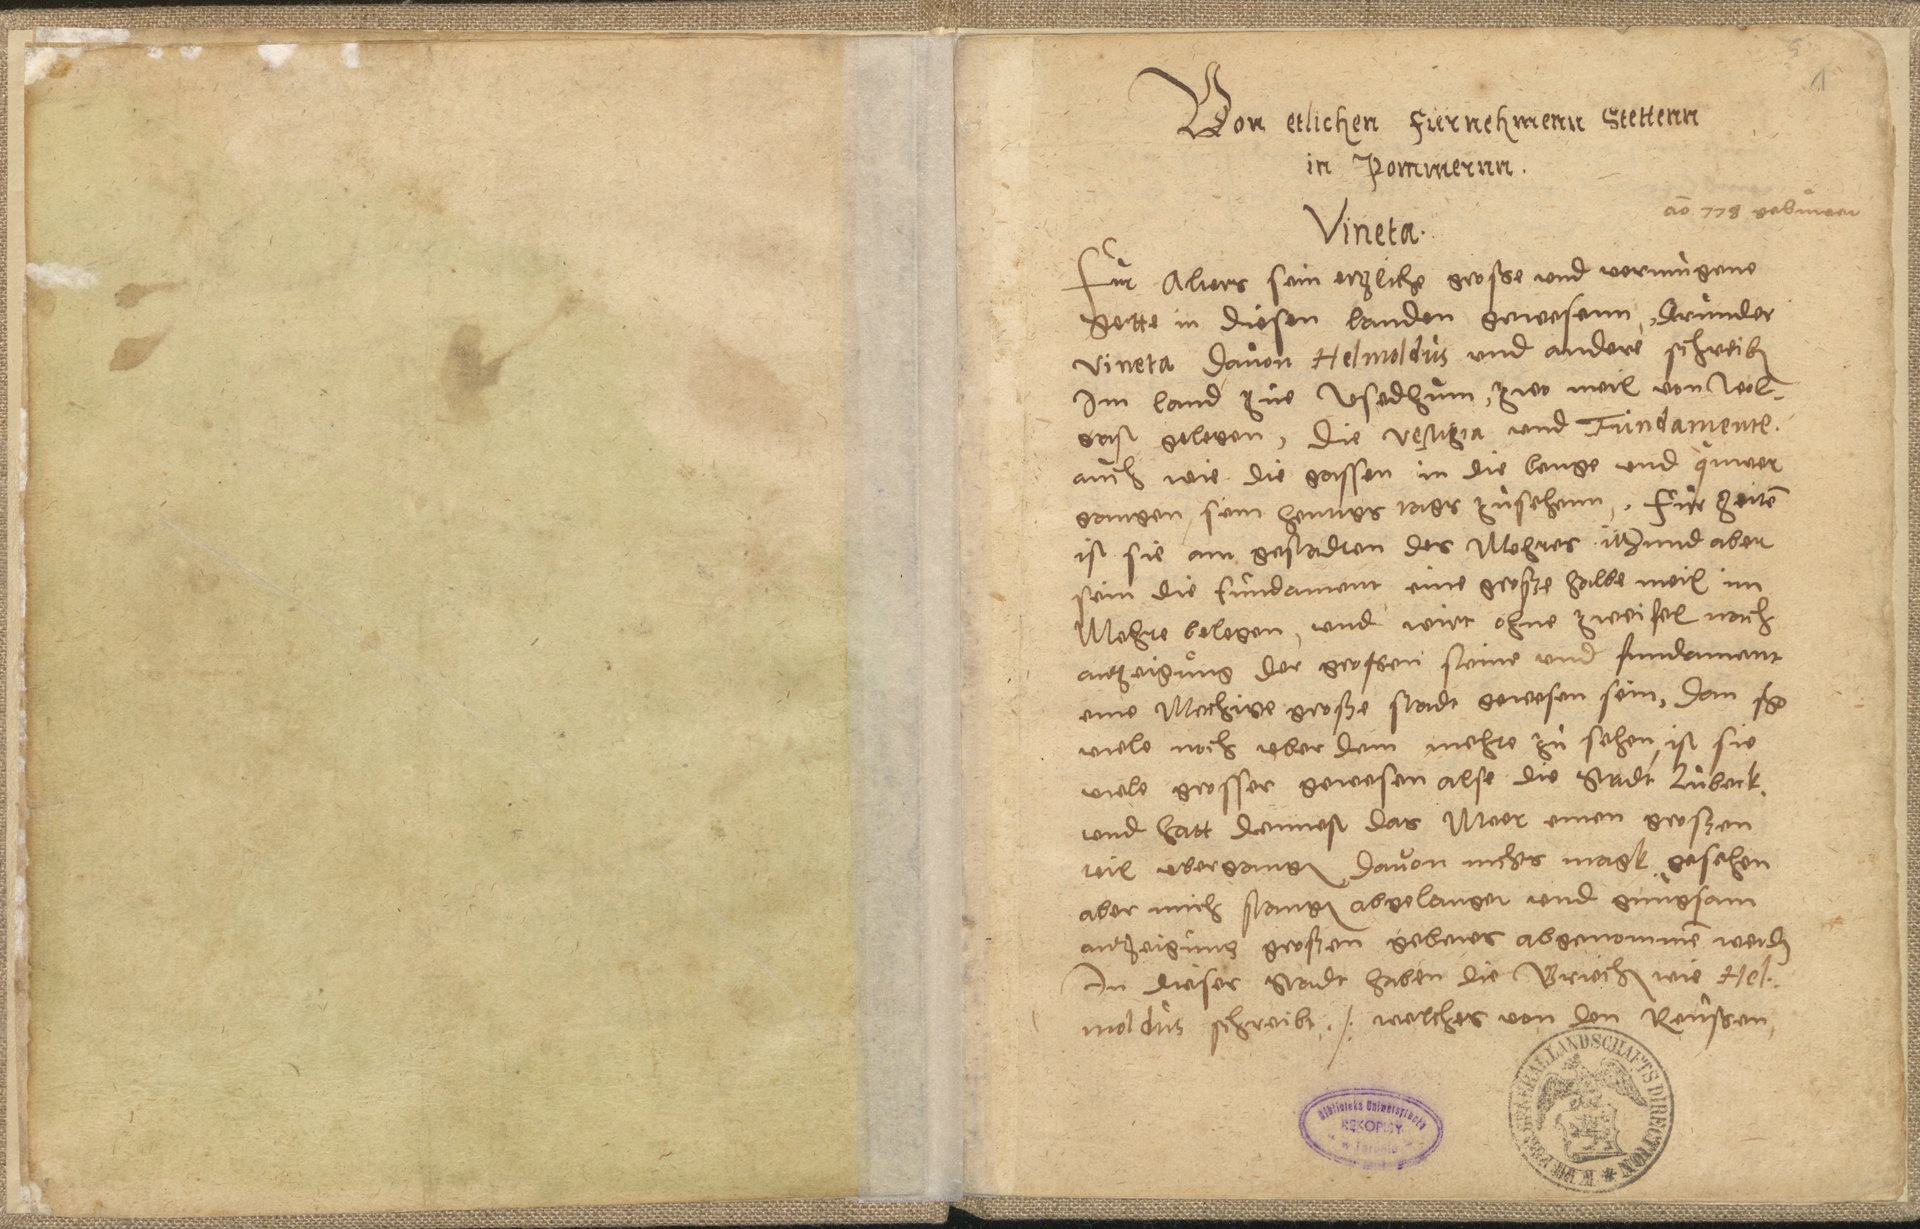 1
Von etlichen furnehmenn Stettenn
in Pommernn.
ao 778
Vineta.
Fur Alters sein etzliche grosse und vermugene
Stette in diesen landen gewesenn, darunder
Vineta davon Helmoldus und andere schreiben
Im land zue Usedhum, zwo meil von Wol-
gast gelegen, Die vestigia und Fundamente.
auch wie die gassen in die lenge und quwer
gangen sein heutigs tags zusehenn, Fur zeiten
ist sie am gestadten des Mehres itzund aber
sein die fundament eine grosze halbe meil im
Mehre belegen, und wirt ohne zweifel nach
antzeigung der grossen steine und fundament
eine Mechtige grosze stadt gewesen sein, Dan so
viele noch uber dem mehre zu sehen, ist sie
viele grosser gewesen alse die Stadt Lubeck,
und hatt dennost das Meer einen groszen
teil ubergangen davon nichts magk gesehen
aber mith stangen abgelanget und gnugsam
antzeigung groszen gebewes abgenommen werden
In dieser Stadt haben die Griechen wie Hel-
moldus schreibt ./. welches von den Reussen,
Biblioteka Uniwersytecka
RĘKOPISY
w Toruniu
GENERAL LANDSCHAFTS DIRECTION